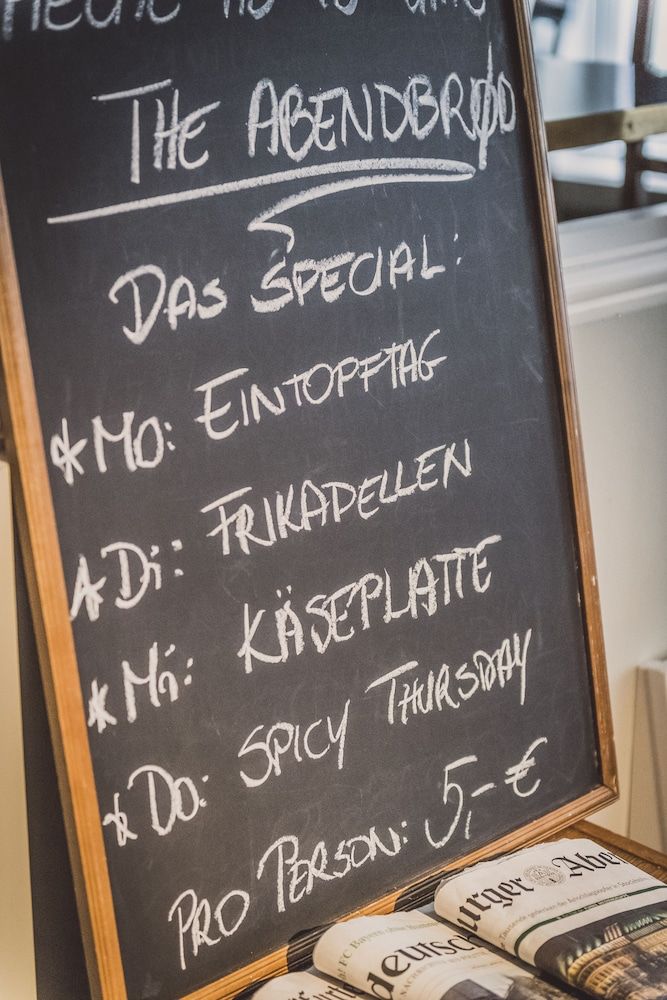 THE ABENDBRØD
DAS SPECIAL:
* MO: EINTOPFTAG
* DI: FRIKADELLEN
* MI: KÄSEPLATTE
* DO: SPICY THURSDAY
PRO PERSON: 5,- €
urger Aben
FC Bayern
deutsch